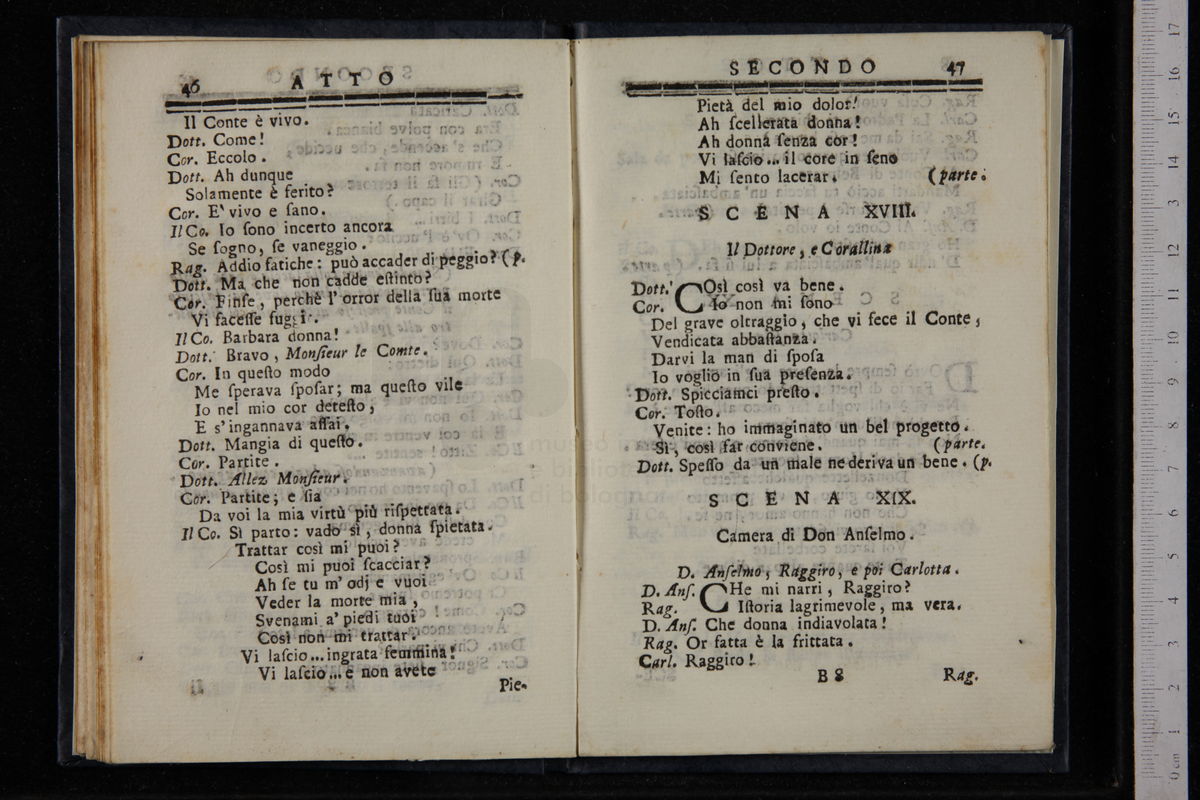 46 ATTO
Il Conte è vivo.
Dott. Come!
Cor. Eccolo.
Dott. Ah dunque
Solamente è ferito?
Cor. E' vivo e sano.
Il Co. Io sono incerto ancora
Se sogno, se vaneggio.
Rag. Addio fatiche: può accader di peggio? (p.
Dott. Ma che non cadde estinto?
Cor. Finse, perchè l' orror della sua morte
Vi facesse
Il Co. Barbara donna!
Dott. Bravo, Monsieur le Comte.
Cor. In questo modo
Me sperava sposar; ma questo vile
Io nel mio cor detesto,
E s' ingannava assai.
Dott. Mangia di questo.
Cor. Partite.
Dott. Allez Monsieur.
Cor. Partite; e sia
Da voi la mia virtù più rispettata.
Il Co. Sì parto: vado sì, donna spietata.
Trattar così mi puoi?
Così mi puoi scacciar?
Ah se tu m' odj e vuoi
Veder la morte mia,
Svenami a' piedi tuoi
Così non mi trattar.
Vi lascio... ingrata femmina!
Vi lascio... e non avete
Pie-
SECONDO 47
Pietà del mio dolor!
Ah scellerata donna!
Ah donna senza cor!
Vi lascio... il core in seno
Mi sento lacerar. (parte.
SCENA XVIII.
Il Dottore, e Corallina
Dott. COsì così va bene.
Cor. Io non mi sono
Del grave oltraggio, che vi fece il Conte,
Vendicata abbastanza.
Darvi la man di sposa
Io voglio in sua presenza.
Dott. Spicciamci presto.
Cor. Tosto.
Venite: ho immaginato un bel progetto.
Sì, così far conviene. (parte.
Dott. Spesso da un male ne deriva un bene. (p.
SCENA XIX.
Camera di Don Anselmo.
D. Anselmo, Raggiro, e poi Carlotta.
D. Ans. CHe mi narri, Raggiro?
Rag. Istoria lagrimevole, ma vera.
D. Ans. Che donna indiavolata!
Rag. Or fatta è la frittata.
Carl. Raggiro!
B 8 Rag.